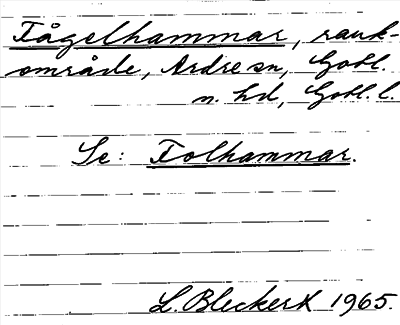 Fågelhammar, rauk-
område, Ardre sn, Gotl.
n. hd, Gotl. l.
Se: Folhammar.
L. Bleckert 1965.